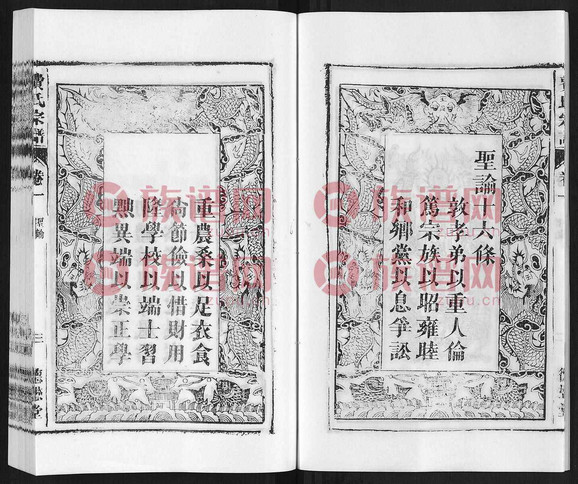 聖諭十六條
敦孝弟以重人倫
篤宗族以昭雍睦
和鄉黨以息爭訟
重農桑以足衣食
尚節儉以惜財用
隆學校以端士習
黜異端以崇正學
費氏宗譜
卷一
聖諭
三
族谱网
族谱网
族谱网
族谱网